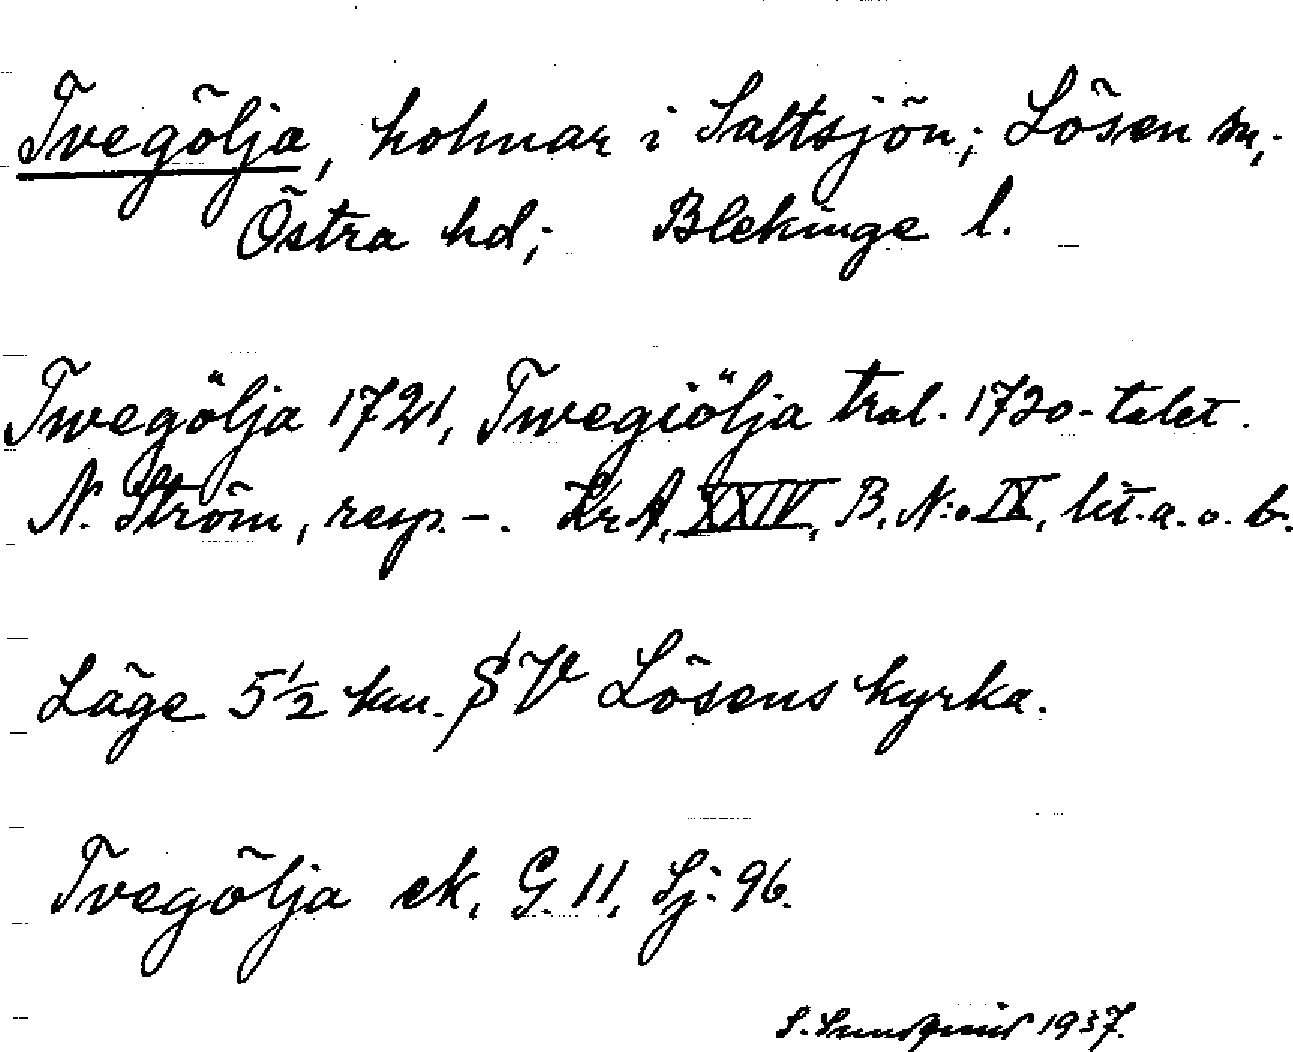 Tvegölja, holmar i Saltsjön; Lösen sn;
Östra hd; Blekinge l.
Twegölja 1721, Twegiölja tral. 1720-talet.
N. Ström, resp. –. KrA, XXIV, B, N:o IX, lit. a. o. b.
Läge 5 1/2 km. SV Lösens kyrka.
Tvegölja ek, G. 11, Sj: 96.
S. Sundquist 1937.